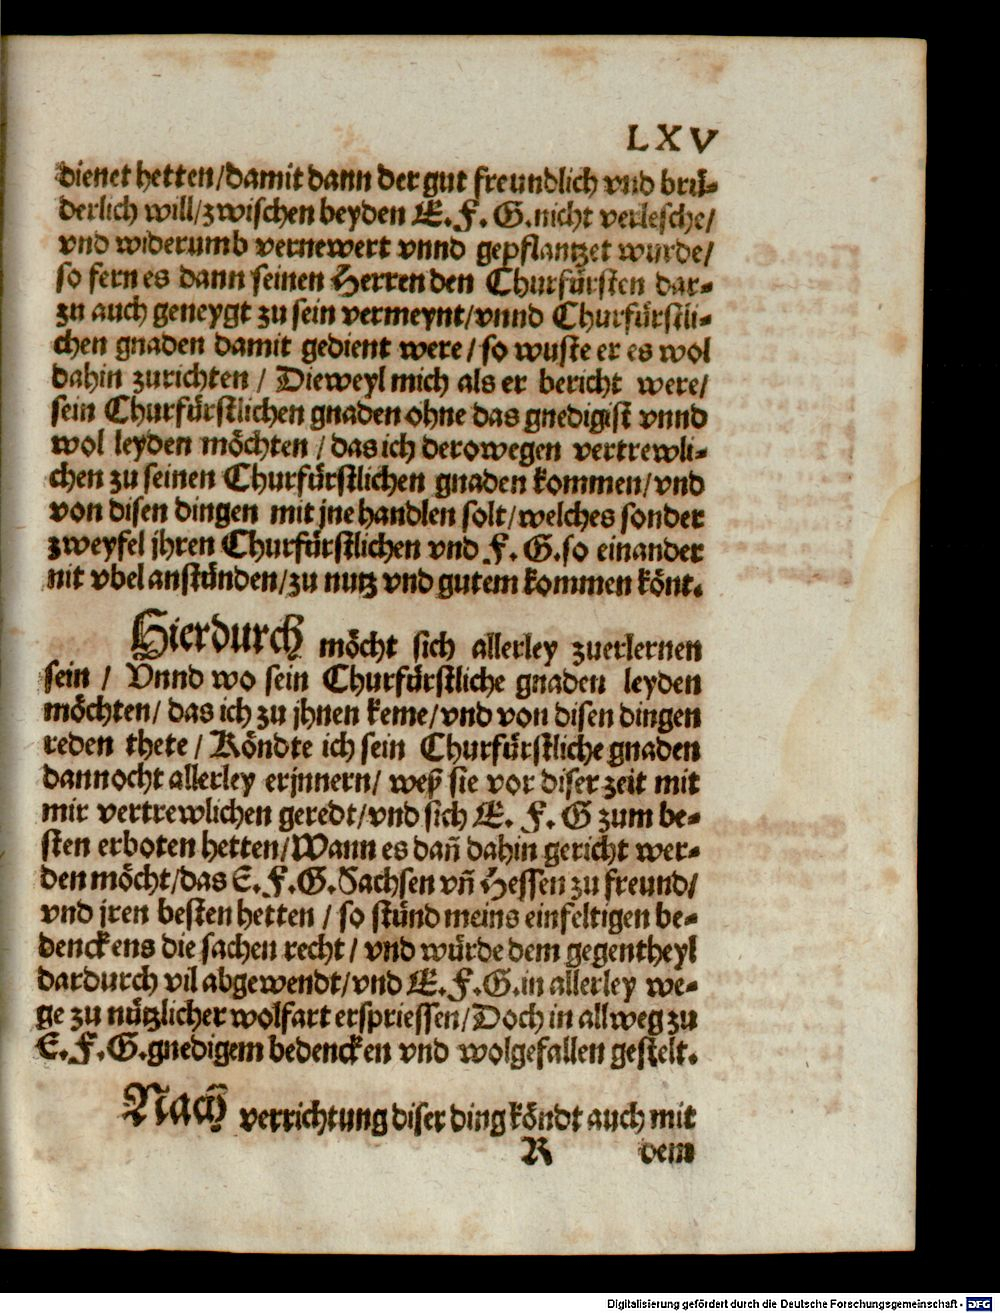 LXV
dienet hetten/damit dann der gut freundlich vnd brü-
derlich will/zwischen beyden E. F. G. nicht verlesche/
vnd widerumb vernewert vnnd gepflantzet wurde/
so fern es dann seinen Herren den Churfürsten dar-
zu auch geneygt zu sein vermeynt/vnnd Churfürstli-
chen gnaden damit gedient were/so wuste er es wol
dahin zurichten / Dieweyl mich als er bericht were/
sein Churfürstlichen gnaden ohne das gnedigist vnnd
wol leyden möchten / das ich derowegen vertrewli-
chen zu seinen Churfürstlichen gnaden kommen/vnd
von disen dingen mit jne handlen solt/welches sonder
zweyfel jhren Churfürstlichen vnd F. G. so einander
nit vbel anstünden/zu nutz vnd gutem kommen könt.
Hierdurch möcht sich allerley zuerlernen
sein / Vnnd wo sein Churfürstliche gnaden leyden
möchten/ das ich zu jhnen keme/vnd von disen dingen
reden thete / Köndte ich sein Churfürstliche gnaden
dannocht allerley erjnnern/ weß sie vor diser zeit mit
mir vertrewlichen geredt/vnd sich E. F. G zum be-
sten erboten hetten/Wann es dañ dahin gericht wer-
den möcht/das E. F. G. Sachsen vñ Hessen zu freund/
vnd jren besten hetten / so stünd meins einfeltigen be-
denckens die sachen recht / vnd würde dem gegentheyl
dardurch vil abgewendt/vnd E. F. G. in allerley we-
ge zu nützlicher wolfart erspriessen/Doch in allweg zu
E. F. G. gnedigem bedencken vnd wolgefallen gestelt.
Nach verrichtung diser ding köndt auch mit
R dem
Digitalisierung gefördert durch die Deutsche Forschungsgemeinschaft - DFG